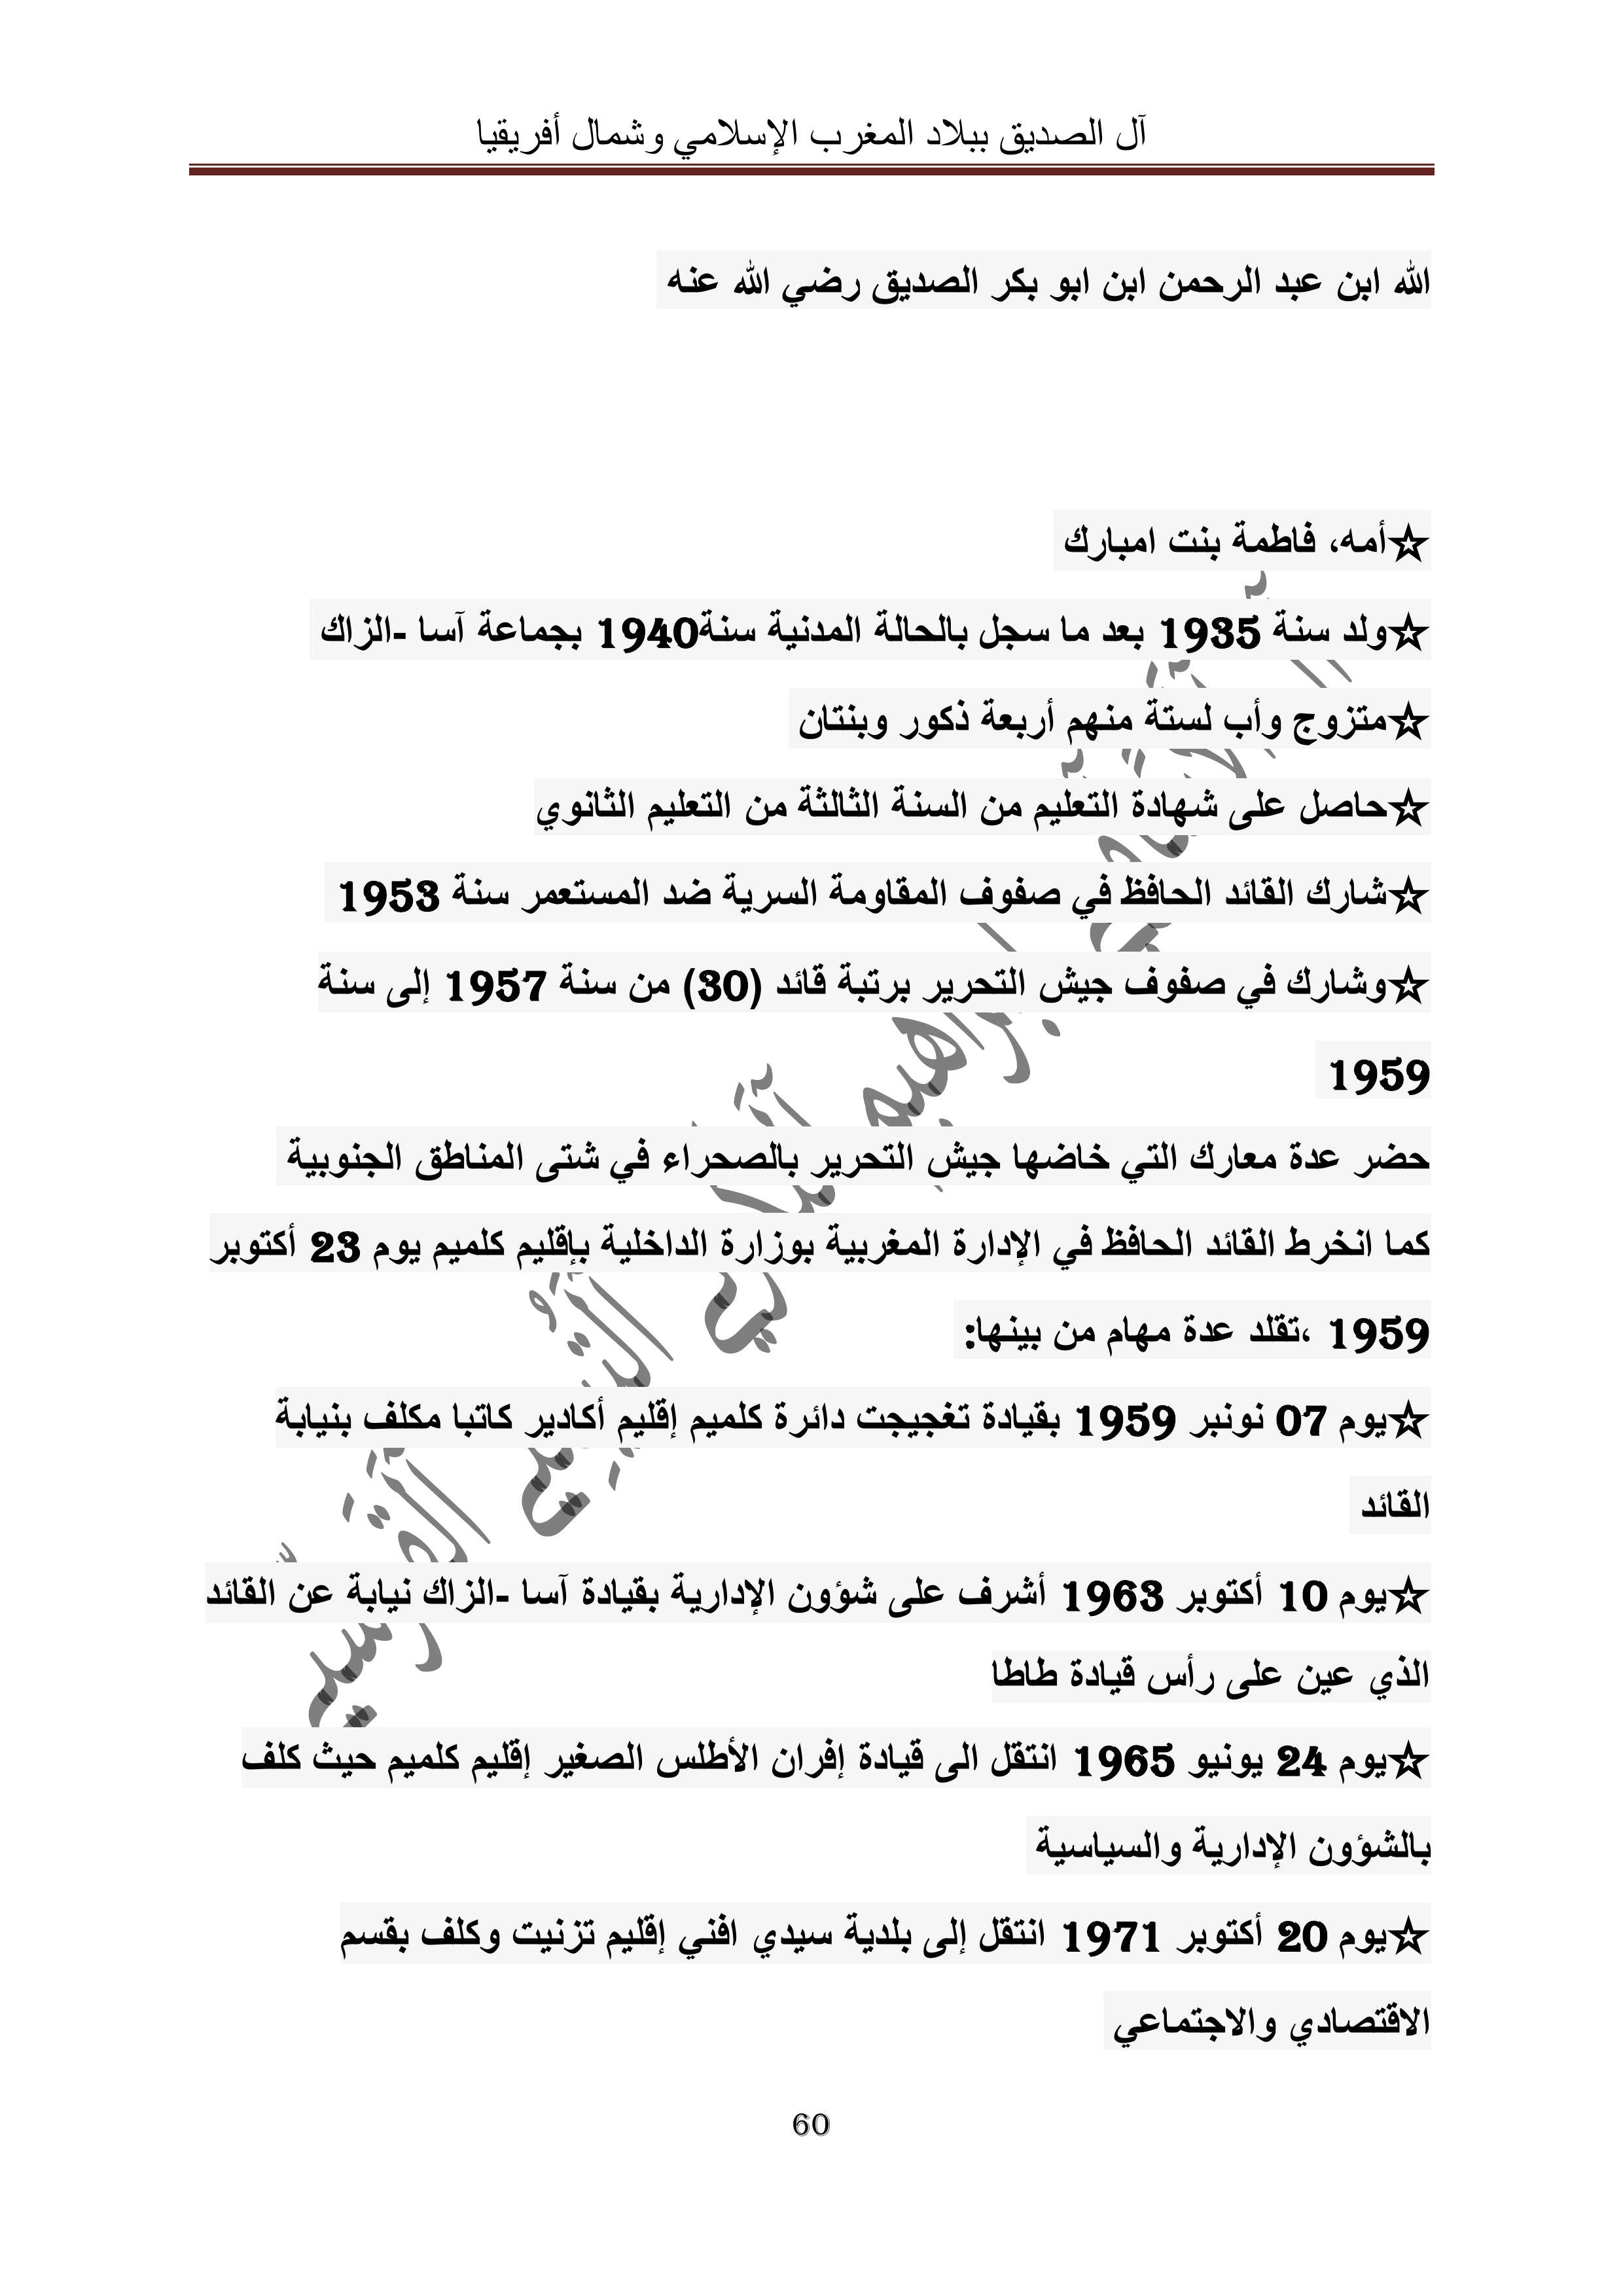 آل الصديق ببلاد المغرب الإسلامي وشمال أفريقيا
الله ابن عبد الرحمن ابن ابو بكر الصديق رضي الله عنه
☆أمه، فاطمة بنت امبارك
☆ولد سنة 1935 بعد ما سجل بالحالة المدنية سنة1940 بجماعة آسا -الزاك
☆متزوج وأب لستة منهم أربعة ذكور وبنتان
☆حاصل على شهادة التعليم من السنة الثالثة من التعليم الثانوي
☆شارك القائد الحافظ في صفوف المقاومة السرية ضد المستعمر سنة 1953
☆وشارك في صفوف جيش التحرير برتبة قائد (30) من سنة 1957 إلى سنة
1959
حضر عدة معارك التي خاضها جيش التحرير بالصحراء في شتى المناطق الجنوبية
كما انخرط القائد الحافظ في الإدارة المغربية بوزارة الداخلية بإقليم كلميم يوم 23 أكتوبر
1959 ،تقلد عدة مهام من بينها:
☆يوم 07 نونبر 1959 بقيادة تغجيجت دائرة كلميم إقليم أكادير كاتبا مكلف بنيابة
القائد
☆يوم 10 أكتوبر 1963 أشرف على شؤون الإدارية بقيادة آسا -الزاك نيابة عن القائد
الذي عين على رأس قيادة طاطا
☆يوم 24 يونيو 1965 انتقل الى قيادة إفران الأطلس الصغير إقليم كلميم حيث كلف
بالشؤون الإدارية والسياسية
☆يوم 20 أكتوبر 1971 انتقل إلى بلدية سيدي افني إقليم تزنيت وكلف بقسم
الاقتصادي والاجتماعي
60